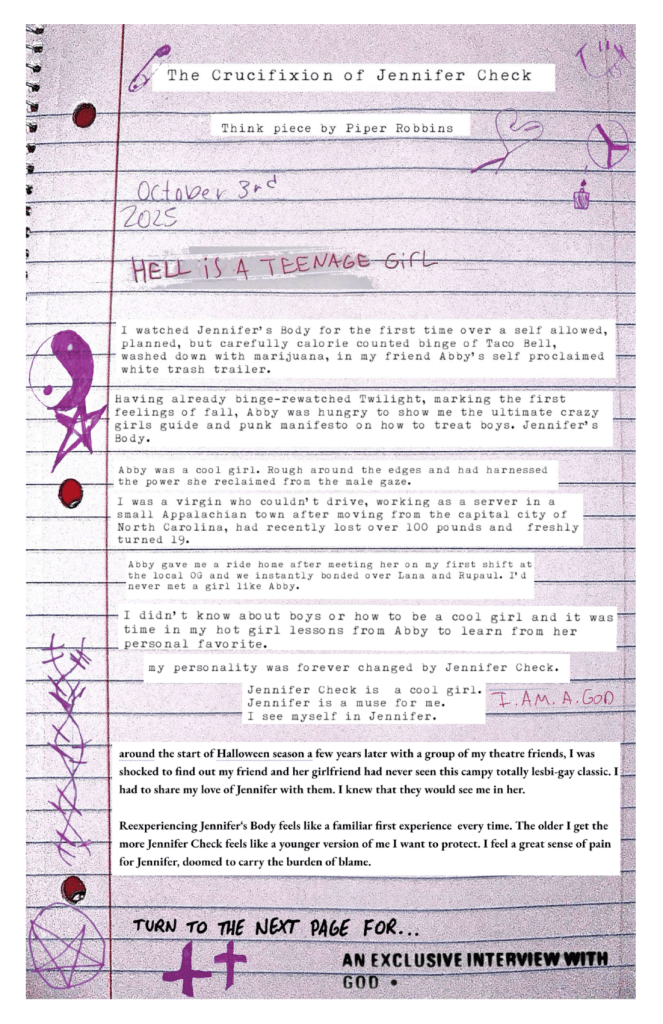 The Crucifixion of Jennifer Check
Think piece by Piper Robbins
October 3rd
2025
HELL iS A TEENAGE GirL
I watched Jennifer's Body for the first time over a self allowed,
planned, but carefully calorie counted binge of Taco Bell,
washed down with marijuana, in my friend Abby's self proclaimed
white trash trailer.
Having already binge-rewatched Twilight, marking the first
feelings of fall, Abby was hungry to show me the ultimate crazy
girls guide and punk manifesto on how to treat boys. Jennifer's
Body.
Abby was a cool girl. Rough around the edges and had harnessed
the power she reclaimed from the male gaze.
I was a virgin who couldn't drive, working as a server in a
small Appalachian town after moving from the capital city of
North Carolina, had recently lost over 100 pounds and freshly
turned 19.
Abby gave me a ride home after meeting her on my first shift at
the local OG and we instantly bonded over Lana and Rupaul. I'd
never met a girl like Abby.
I didn't know about boys or how to be a cool girl and it was
time in my hot girl lessons from Abby to learn from her
personal favorite.
my personality was forever changed by Jennifer Check.
Jennifer Check is a cool girl.
Jennifer is a muse for me.
I see myself in Jennifer.
I.AM.A.GOD
around the start of Halloween season a few years later with a group of my theatre friends, I was
shocked to find out my friend and her girlfriend had never seen this campy totally lesbi-gay classic. I
had to share my love of Jennifer with them. I knew that they would see me in her.
Reexperiencing Jennifer's Body feels like a familiar first experience every time. The older I get the
more Jennifer Check feels like a younger version of me I want to protect. I feel a great sense of pain
for Jennifer, doomed to carry the burden of blame.
TURN TO THE NEXT PAGE FOR...
AN EXCLUSIVE INTERVIEW WITH
GOD •